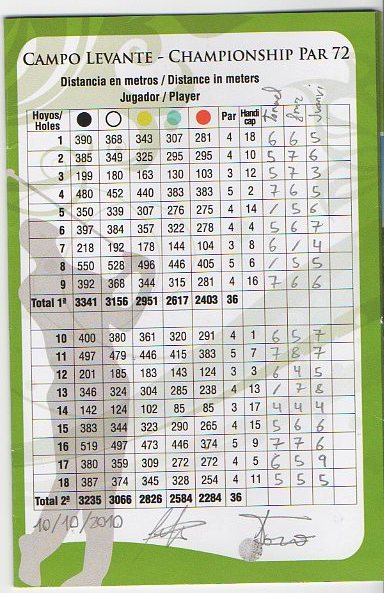 CAMPO LEVANTE - CHAMPIONSHIP PAR 72
Distancia en metros / Distance in meters
Jugador / Player
Hoyos/ Holes Par Handi cap Javi
1 390 368 343 307 281 4 18 6 6 5
2 385 349 325 295 295 4 10 5 7 6
3 199 180 163 130 103 3 12 5 7 3
4 480 452 440 383 383 5 2 7 6 5
5 350 339 307 276 275 4 14 / 5 6
6 397 384 357 322 278 4 4 5 6 7
7 218 192 178 144 104 3 8 6 / 4
8 550 528 496 446 405 5 6 / 5 5
9 392 368 344 315 281 4 16 7 6 6
Total 1º 3341 3156 2951 2617 2403 36
10 400 380 361 320 291 4 1 6 5 7
11 497 479 446 415 383 5 7 7 8 7
12 201 185 183 143 124 3 3 6 4 5
13 346 324 304 285 238 4 13 / 7 8
14 142 124 102 85 85 3 17 4 4 4
15 383 344 323 290 265 4 15 5 6 6
16 519 497 473 446 374 5 9 7 7 6
17 380 359 309 272 272 4 5 6 5 9
18 387 374 345 328 254 4 11 5 5 5
Total 2º 3235 3066 2826 2584 2284 36
10/10/2010